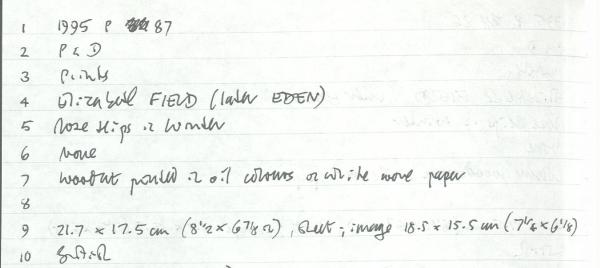 1 1995 P 87
2 P & D
3 Prints
4 Elizabeth FIELD (later EDEN)
5 Rose Hips in Winter
6 None
7 Woodcut printed in oil colours on white wove paper
8
9 21.7 x 17.5 cm (8 1/2 x 6 7/8 in), sheet; image 18.5 x 15.5 cm (7 1/4 x 6 1/8)
10